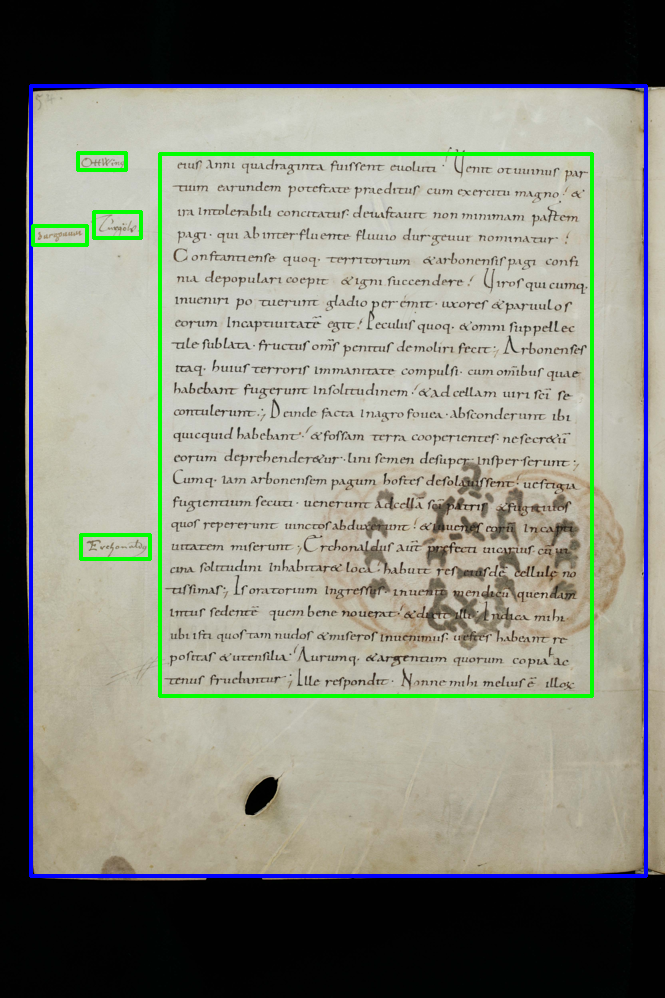 54.
Ottwinus
eius anni quadraginta fuissent euoluti. Uenit otuuinus par
tium earundem potestate praeditus cum exercitu magno. &
ira intolerabili concitatus. deuastauit non minimam partem
pagi. qui ab interfluente fluuio durgeuui nominatur.
durgeuuui
Constantiense quoq. territorium &arbonensis pagi confi
nia depopulari coepit &igni succendere. Uiros qui cumq.
inueniri po tuerunt gladio peremit. uxores &paruulos
eorum incaptiuitatē egit. Peculus quoq. &omni suppellec
tile sublata. fructus om̄s penitus demoliri fecit; Arbonenses
itaq. huius terroris inmanitate compulsi. cum om̄ibus quae
habebant fugerunt insolitudinem. &ad cellam uiri sc̄i se
contulerunt; Deinde facta inagro fouea. absconderunt ibi
quicquid habebant. &fossam terra cooperientes. ne secr&ū
eorum deprehender&ur. lini semen desuper insperserunt;
Cumq. iam arbonensem pagum hostes desolauissent. uestigia
fugientium secuti. uenerunt adcellā sc̄i patris &fugitiuos
quos repererunt uinctos abduxerunt. &iuuenes eorū incapti
uitatem miserunt; Erchonaldus aūt prefecti uicarius. cū ui
Erchonaldus
cina solitudini inhabitar& loca. habuit res eiusdē cellulę no
tissimas; Is oratorium ingressus. inuenit mendicū quendam
intus sedentē quem bene nouerat. &dixit illi. Indica mihi
ubi isti quos tam nudos &miseros inuenimus. uestes habeant re
positas &utensilia. Aurumq. &argentum quorum copia hac
tenus fruebantur; Ille respondit. Nonne mihi melius ē